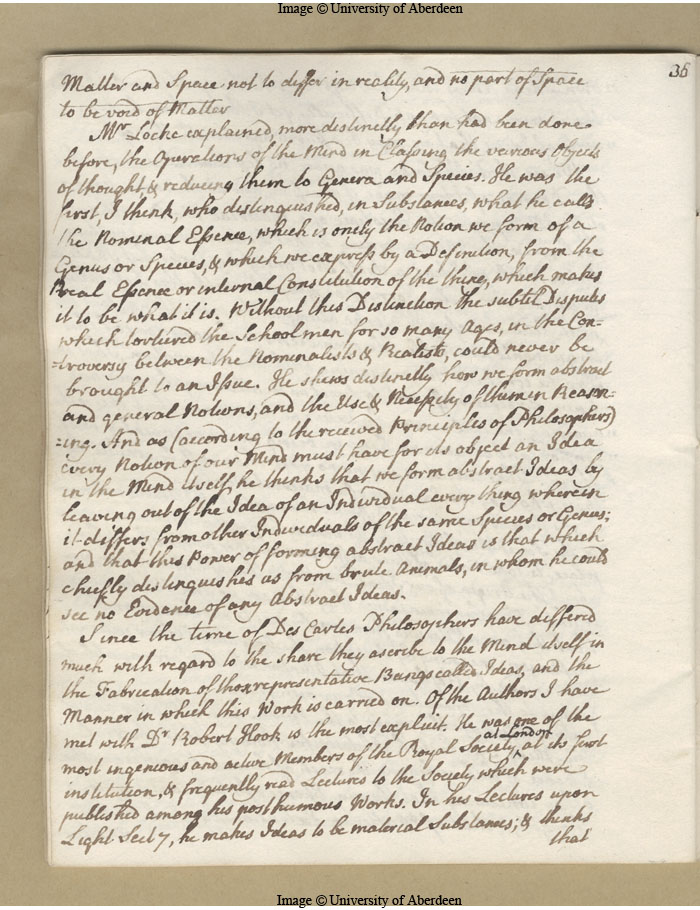 Image © University of Aberdeen
36
Matter and Space not to differ in reality, and no part of Space
to be void of Matter
Mr Locke explained, more distinctly than had been done
before, the Operations of the Mind in Classing the various Objects
of thought & reducing them to Genera and Species. He was the
first, I think, who distinguished, in Substances, what he calls
the Nominal Essence, which is onely the Notion we form of a
Genus or Species, & which we express by a Definition, from the
Real Essence or internal Constitution of the thing, which makes
it to be what it is. Without this Distinction the subtil Disputes
which tortured the School men for so many Ages, in the Con=
=troversy between the Nominalists & Realists, could never be
brought to an Issue. He shews distinctly how we form abstract
and general Notions, and the Use & Necessity of them in Reason=
=ing. And as (according to the received Principles of Philosophers)
every Notion of our Mind must have for its object an Idea
in the Mind itself, he thinks that we form abstract Ideas by
leaving out of the Idea of an Individual every thing wherein
it differs from other Individuals of the same Species or Genus;
and that this Power of forming abstract Ideas is that which
chiefly distinguishes us from brute Animals, in whom he could
see no Evidence of any Abstract Ideas.
Since the time of Des Cartes Philosophers have differed
much with regard to the share they ascribe to the Mind itself in
the Fabrication of those representative Beings called Ideas, and the
Manner in which this Work is carried on. Of the Authors I have
met with Dr Robert Hook is the most explicit. He was one of the
most ingenious and active Members of the Royal Society at London at its first
institution, & frequently read Lectures to the Society which were
published among his posthumous Works. In his Lectures upon
Light Sect 7, he makes Ideas to be material Substances; & thinks
that
Image © University of Aberdeen